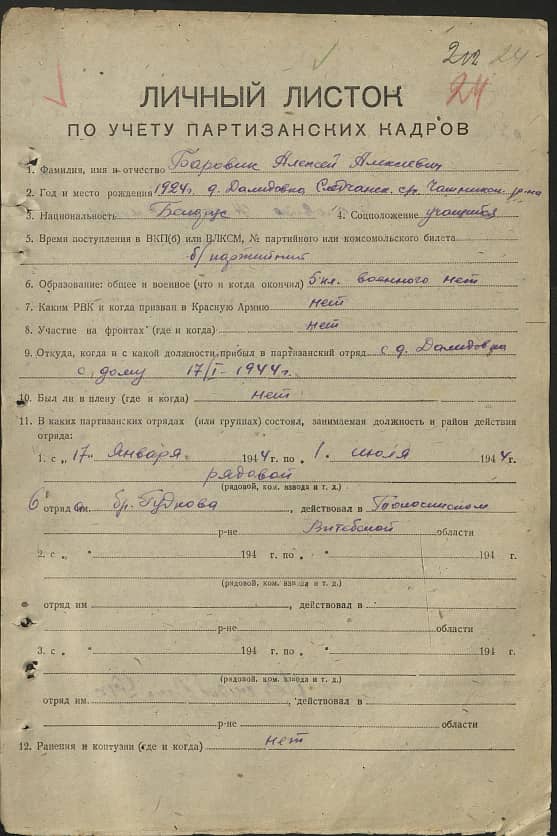 24
24
ЛИЧНЫЙ ЛИСТОК
ПО УЧЕТУ ПАРТИЗАНСКИХ КАДРОВ
1. Фамилия, имя и отчество Боровик Алексей
2. Год и место рождения 1924 г. д. Далидовка р-на
3. Национальность Белорус 4. Соцположение учащийся
5. Время поступления в ВКП(б) или ВЛКСМ, № партийного или комсомольского билета
б/партийный
6. Образование: общее и военное (что и когда окончил) 5 кл. военного нет
7. Каким РВК и когда призван в Красную Армию нет
8. Участие на фронтах (где и когда) нет
9. Откуда, когда и с какой должности прибыл в партизанский отряд с д. Далидовка
с дому 17/I-1944 г.
10. Был ли в плену (где и когда) нет
11. В каких партизанских отрядах (или группах) состоял, занимаемая должность и район действия
отряда:
1. с „17" Января 1944 г. по „1." июля 1944 г.
рядовой
(рядовой, ком. взвода и т. д.)
6 отряд бр. Гудкова, действовал в
р-не Витебской области
2. с „ " 194 г. по „ " 194 г.
(рядовой, ком. взвода и т. д.)
отряд им , действовал в
р-не области
3. с „ " 194 г. по „ " 194 г.
(рядовой, ком. взвода и т. д.)
отряд им. , действовал в
р-не области
12. Ранения и контузии (где и когда) нет